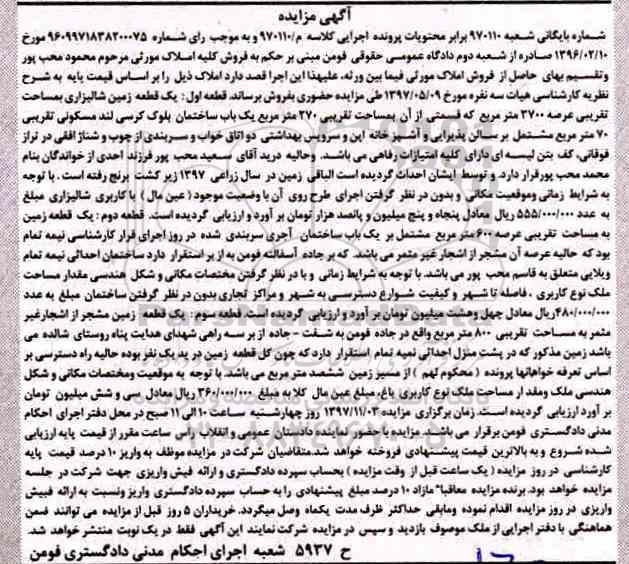 آگهی مزایده
شماره بایگانی شعبه ۹۷۰۱۱۰ برابر محتویات پرونده اجرایی کلاسه م/۹۷۰۱۱۰ و به موجب رای شماره ۹۶۰۹۹۷۱۸۳۸۲۰۰۰۷۵ مورخ
۱۳۹۶/۰۲/۱۰ صادره از شعبه دوم دادگاه عمومی حقوقی فومن مبنی بر حکم به فروش کلیه املاک مورثی مرحوم محمود محب پور
و تقسیم بهای حاصل از فروش املاک مورثی فیما بین ورثه، علیهذا این اجرا قصد دارد املاک ذیل را بر اساس قیمت پایه به شرح
نظریه کارشناسی هیات سه نفره مورخ ۱۳۹۷/۰۵/۰۹ طی مزایده حضوری بفروش برساند. قطعه اول: یک قطعه زمین شالیزاری بمساحت
تقریبی عرصه ۳۷۰۰ متر مربع که قسمتی از آن بمساحت تقریبی ۲۷۰ متر مربع یک باب ساختمان بلوک کرسی لند مسکونی تقریبی
۷۰ متر مربع مشتمل بر سالن پذیرایی و آشپزخانه اپن و سرویس بهداشتی دو اتاق خواب و سربندی از چوب و شناژ افقی در تراز
فوقانی، کف بتن لیسه ای دارای کلیه امتیازات رفاهی می باشد. وحالیه درید آقای سعید محب پور فرزند احدی از خواندگان بنام
محمد محب پور قرار دارد. و توسط ایشان احداث گردیده است الباقی زمین در سال زراعی ۱۳۹۷ زیر کشت برنج رفته است. با توجه
به شرایط زمانی وموقعیت مکانی و بدون در نظر گرفتن اجرای طرح روی آن با وضعیت موجود (عین مال) با کاربری شالیزاری مبلغ
به عدد ۵۵۵/۰۰۰/۰۰۰ ریال معادل پنجاه و پنج میلیون و پانصد هزار تومان بر آورد و ارزیابی گردیده است. قطعه دوم: یک قطعه زمین
به مساحت تقریبی عرصه ۶۰۰ متر مربع مشتمل بر یک باب ساختمان آجری سربندی شده در روز اجرای قرار کارشناسی نیمه تمام
بود که حالیه عرصه آن مشجر از اشجار غیر مثمر می باشد. که بر جاده آسفالته فومن به از بر استقرار دارد ساختمان احداثی نیمه تمام
ویلایی متعلق به قاسم محب پور می باشد. با توجه به شرایط زمانی و با در نظر گرفتن مختصات مکانی و شکل هندسی مقدار مساحت
ملک نوع کاربری، فاصله تا شهر و کیفیت شوارع دسترسی به شهر و مراکز تجاری بدون در نظر گرفتن ساختمان مبلغ به عدد
۴۸۰/۰۰۰/۰۰۰ریال معادل چهل وهشت میلیون تومان بر آورد و ارزیابی گردیده است. قطعه سوم: یک قطعه زمین مشجر از اشجار غیر
مثمر به مساحت تقریبی ۸۰۰ متر مربع واقع در جاده فومن به شفت - جاده از بر سه راهی شهدای هدایت پناه روستای شالده می
باشد زمین مذکور که در پشت منزل احداثی نمیه تمام استقرار دارد که چون کل قطعه زمین در ید یک نفر بوده حالیه راه دسترسی بر
اساس تعرفه خواهانها پرونده (محکوم لهم) از مسیر زمین ششصد متر مربع می باشد. با توجه به موقعیت ومختصات مکانی و شکل
هندسی ملک ومقدار مساحت ملک نوع کاربری باغ، مبلغ عین مال کلا به مبلغ ۳۶۰/۰۰۰/۰۰۰ ریال معادل سی و شش میلیون تومان
بر آورد ارزیابی گردیده است. زمان برگزاری مزایده ۱۳۹۷/۱۱/۰۳ روز چهارشنبه ساعت ۱۰ الی ۱۱ صبح در محل دفتر اجرای احکام
مدنی دادگستری فومن برقرار می باشد. مزایده با حضور نماینده دادستان عمومی و انقلاب راس ساعت مقرر از قیمت پایه ارزیابی
شده شروع و به بالاترین قیمت پیشنهادی فروخته خواهد شد.متقاضیان شرکت در مزایده موظف به واریز ۱۰ درصد قیمت پایه
کارشناسی در روز مزایده (یک ساعت قبل از وقت مزایده) بحساب سپرده دادگستری و ارائه فیش واریزی جهت شرکت در جلسه
مزایده خواهد بود. برنده مزایده معاقبا" مازاد ۱۰ درصد مبلغ پیشنهادی را به حساب سپرده دادگستری واریز ونسبت به ارائه فیش
واریزی در روز مزایده اقدام نموده ومابقی حداکثر ظرف مدت یکماه وصل میگردد. خریداران ۵ روز قبل از مزایده می توانند ضمن
هماهنگی با دفتر اجرایی از ملک موصوف بازدید و سپس در مزایده شرکت نمایند این آگهی فقط در یک نوبت منتشر خواهد شد.
ح ۵۹۳۷ شعبه اجرای احکام مدنی دادگستری فومن